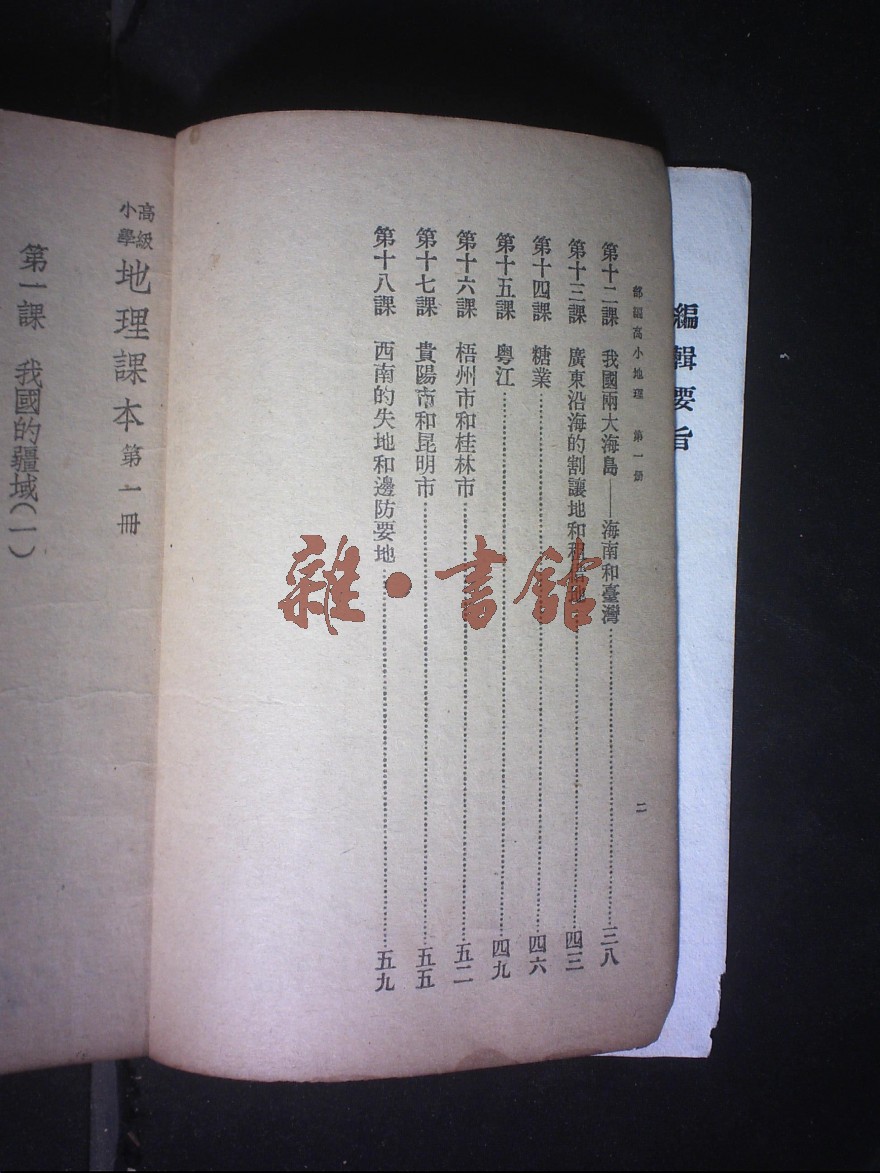 編輯要旨
部編高小地理 第一册
第十二課 我國兩大海島——海南和臺灣 三八
第十三課 廣東沿海的割讓地和租借地 四三
第十四課 糖業 四六
第十五課 粵江 四九
第十六課 梧州市和桂林市 五二
第十七課 貴陽市和昆明市 五五
第十八課 西南的失地和邊防要地 五九
二
高級小學 地理課本 第一冊
第一課 我國的疆域(一)
雜·書館